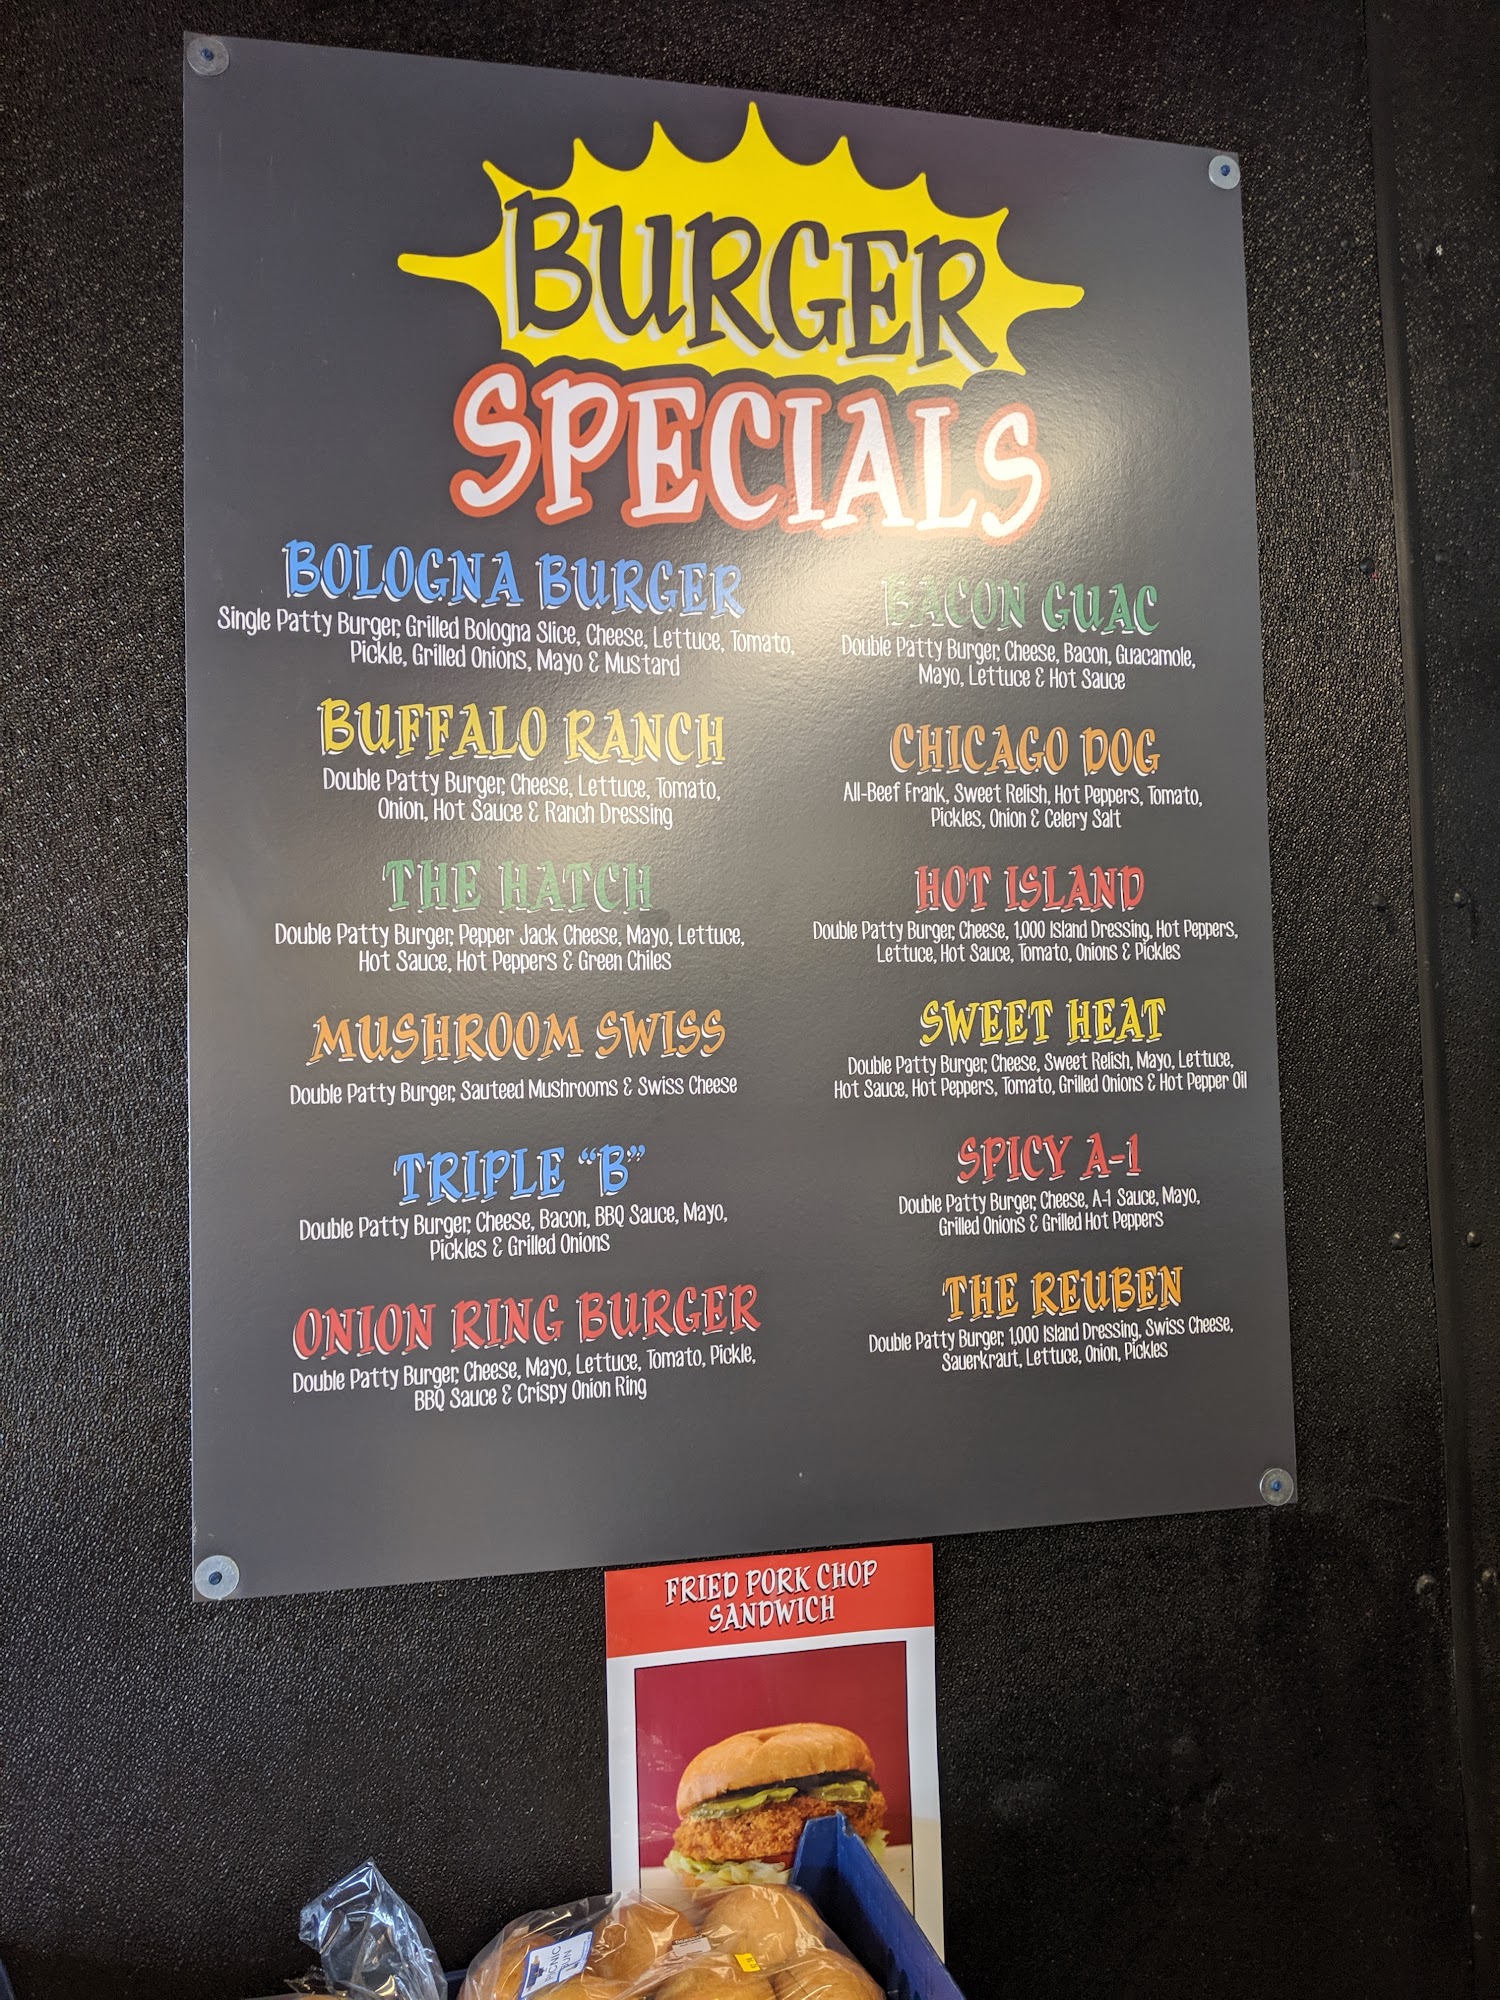 BURGER
SPECIALS
BOLOGNA BURGER
Single Patty Burger, Grilled Bologna Slice, Cheese, Lettuce, Tomato,
Pickle, Grilled Onions, Mayo & Mustard
BUFFALO RANCH
Double Patty Burger, Cheese, Lettuce, Tomato,
Onion, Hot Sauce & Ranch Dressing
THE HATCH
Double Patty Burger, Pepper Jack Cheese, Mayo, Lettuce,
Hot Sauce, Hot Peppers & Green Chiles
MUSHROOM SWISS
Double Patty Burger, Sauteed Mushrooms & Swiss Cheese
TRIPLE "B"
Double Patty Burger, Cheese, Bacon, BBQ Sauce, Mayo,
Pickles & Grilled Onions
ONION RING BURGER
Double Patty Burger, Cheese, Mayo, Lettuce, Tomato, Pickle,
BBQ Sauce & Crispy Onion Ring
BACON GUAC
Double Patty Burger, Cheese, Bacon, Guacamole,
Mayo, Lettuce & Hot Sauce
CHICAGO DOG
All-Beef Frank, Sweet Relish, Hot Peppers, Tomato,
Pickles, Onion & Celery Salt
HOT ISLAND
Double Patty Burger, Cheese, 1,000 Island Dressing, Hot Peppers,
Lettuce, Hot Sauce, Tomato, Onions & Pickles
SWEET HEAT
Double Patty Burger, Cheese, Sweet Relish, Mayo, Lettuce,
Hot Sauce, Hot Peppers, Tomato, Grilled Onions & Hot Pepper Oil
SPICY A-1
Double Patty Burger, Cheese, A-1 Sauce, Mayo,
Grilled Onions & Grilled Hot Peppers
THE REUBEN
Double Patty Burger, 1,000 Island Dressing, Swiss Cheese,
Sauerkraut, Lettuce, Onion, Pickles
FRIED PORK CHOP
SANDWICH
PICNIC
BUN